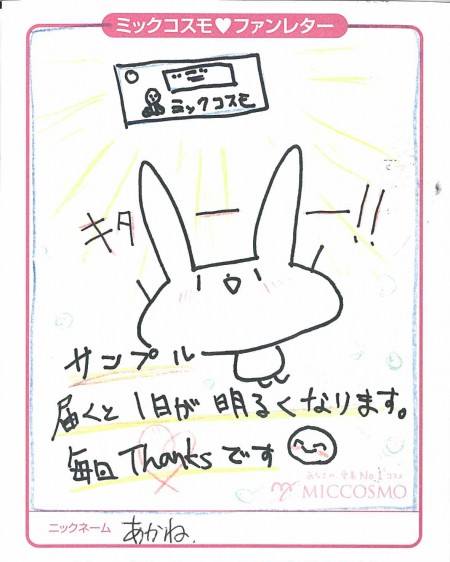 ミックコスモ♥ファンレター
ミックコスモ
キターー!!
サンプル
届くと1日が明るくなります。
毎回Thanksです
あなたの、愛着No.1コスメ
MICCOSMO
ニックネーム あかね。